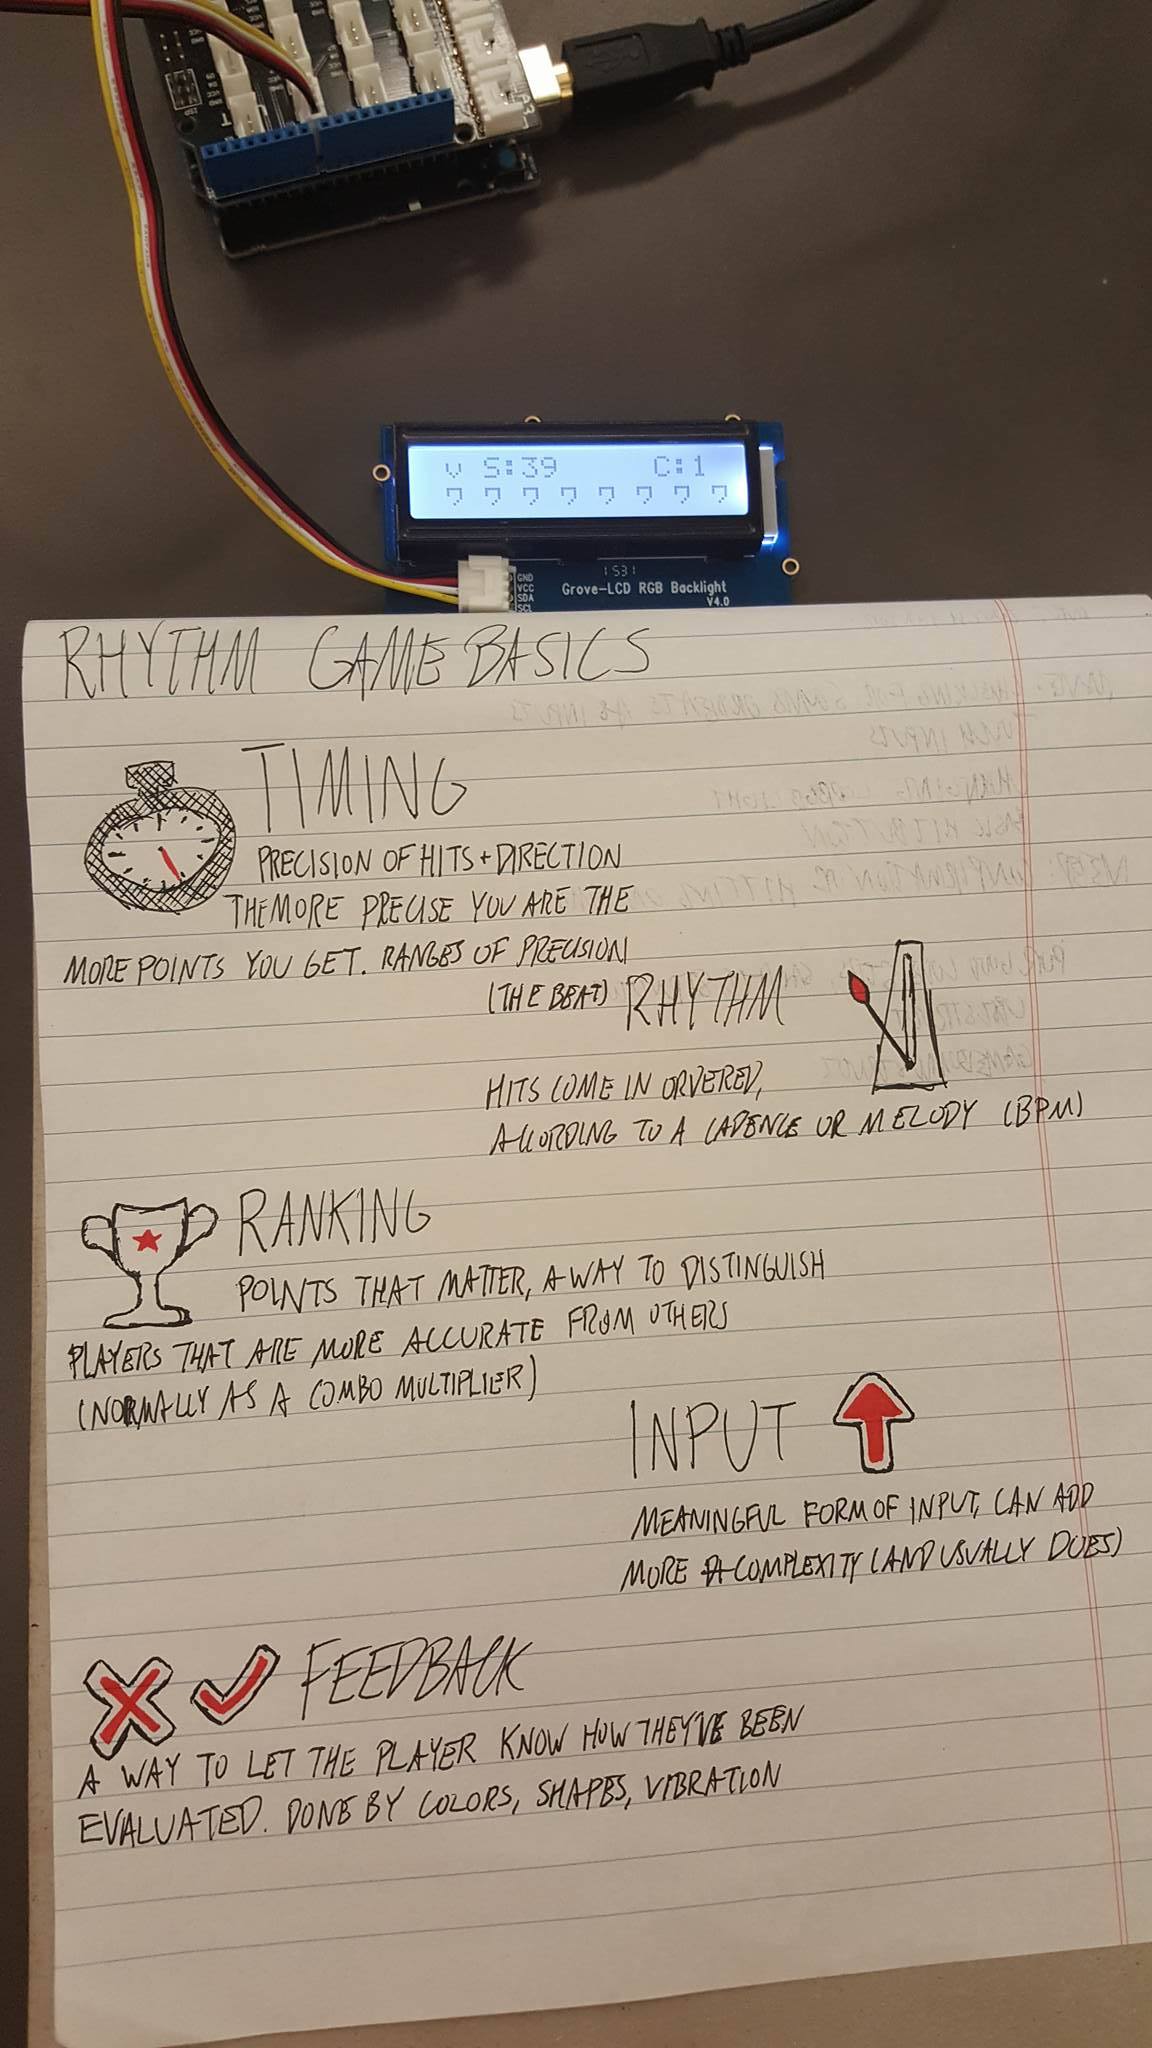 v S:39 C:1
GND
VCC
SDA
SCL
1531
Grove-LCD RGB Backlight
V4.0
RHYTHM GAME BASICS
TIMING
PRECISION OF HITS + DIRECTION
THE MORE PRECISE YOU ARE THE
MORE POINTS YOU GET. RANGES OF PRECISION
(THE BEAT) RHYTHM
HITS COME IN ORDERED,
ACCORDING TO A CADENCE OR MELODY (BPM)
RANKING
POINTS THAT MATTER, A WAY TO DISTINGUISH
PLAYERS THAT ARE MORE ACCURATE FROM OTHERS
(NORMALLY AS A COMBO MULTIPLIER)
INPUT
MEANINGFUL FORM OF INPUT, CAN ADD
MORE COMPLEXITY (AND USUALLY DOES)
FEEDBACK
A WAY TO LET THE PLAYER KNOW HOW THEY'VE BEEN
EVALUATED. DONE BY COLORS, SHAPES, VIBRATION